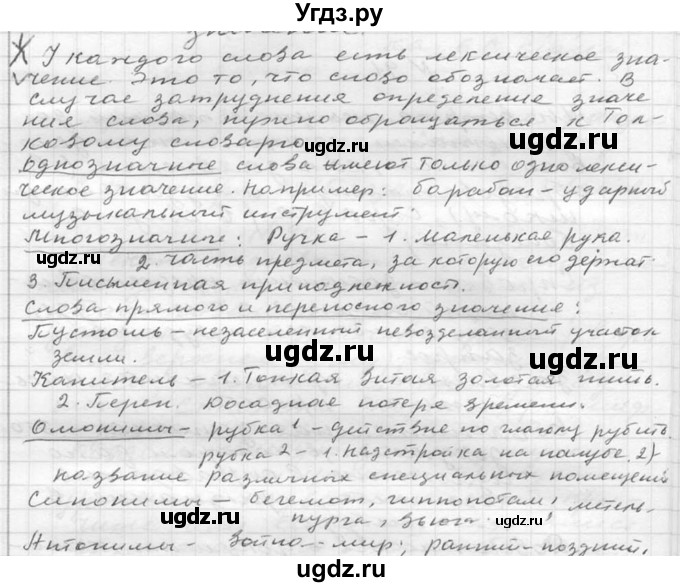 Угдз.ру
У каждого слова есть лексическое зна-
чение. Это то, что слово обозначает. В
случае затруднения определение значе
ния слова, нужно обращаться к Тол-
ковому словарю
ugdz.ru ugdz.ru
Однозначные слова имеют только одно лекси-
ческое значение. Например: барабан – ударный
музыкальный инструмент.
ugdz.ru
Многозначные: Ручка – 1. Маленькая рука.
2. часть предмета, за которую его держат.
ugdz.ru ugdz.ru
3. Письменная принадлежность.
Слова прямого и переносного значения:
Пустошь – незаселенный невозделанный участок
земли.
ugdz.ru
Канитель – 1. Тонкая витая золотая нить.
2. Перен. Досадная потеря времени.
ugdz.ru ugdz.ru
Омонимы – рубка 1 – действие по глаголу рубить.
рубка 2 – 1. Надстройка на палубе 2)
название различных специальных помещений
ugdz.ru
Синонимы – бегемот, гиппопотам, метель-
пурга, вьюга.
ugdz.ru ugdz.ru
Антонимы – война – мир; ранний – поздний.